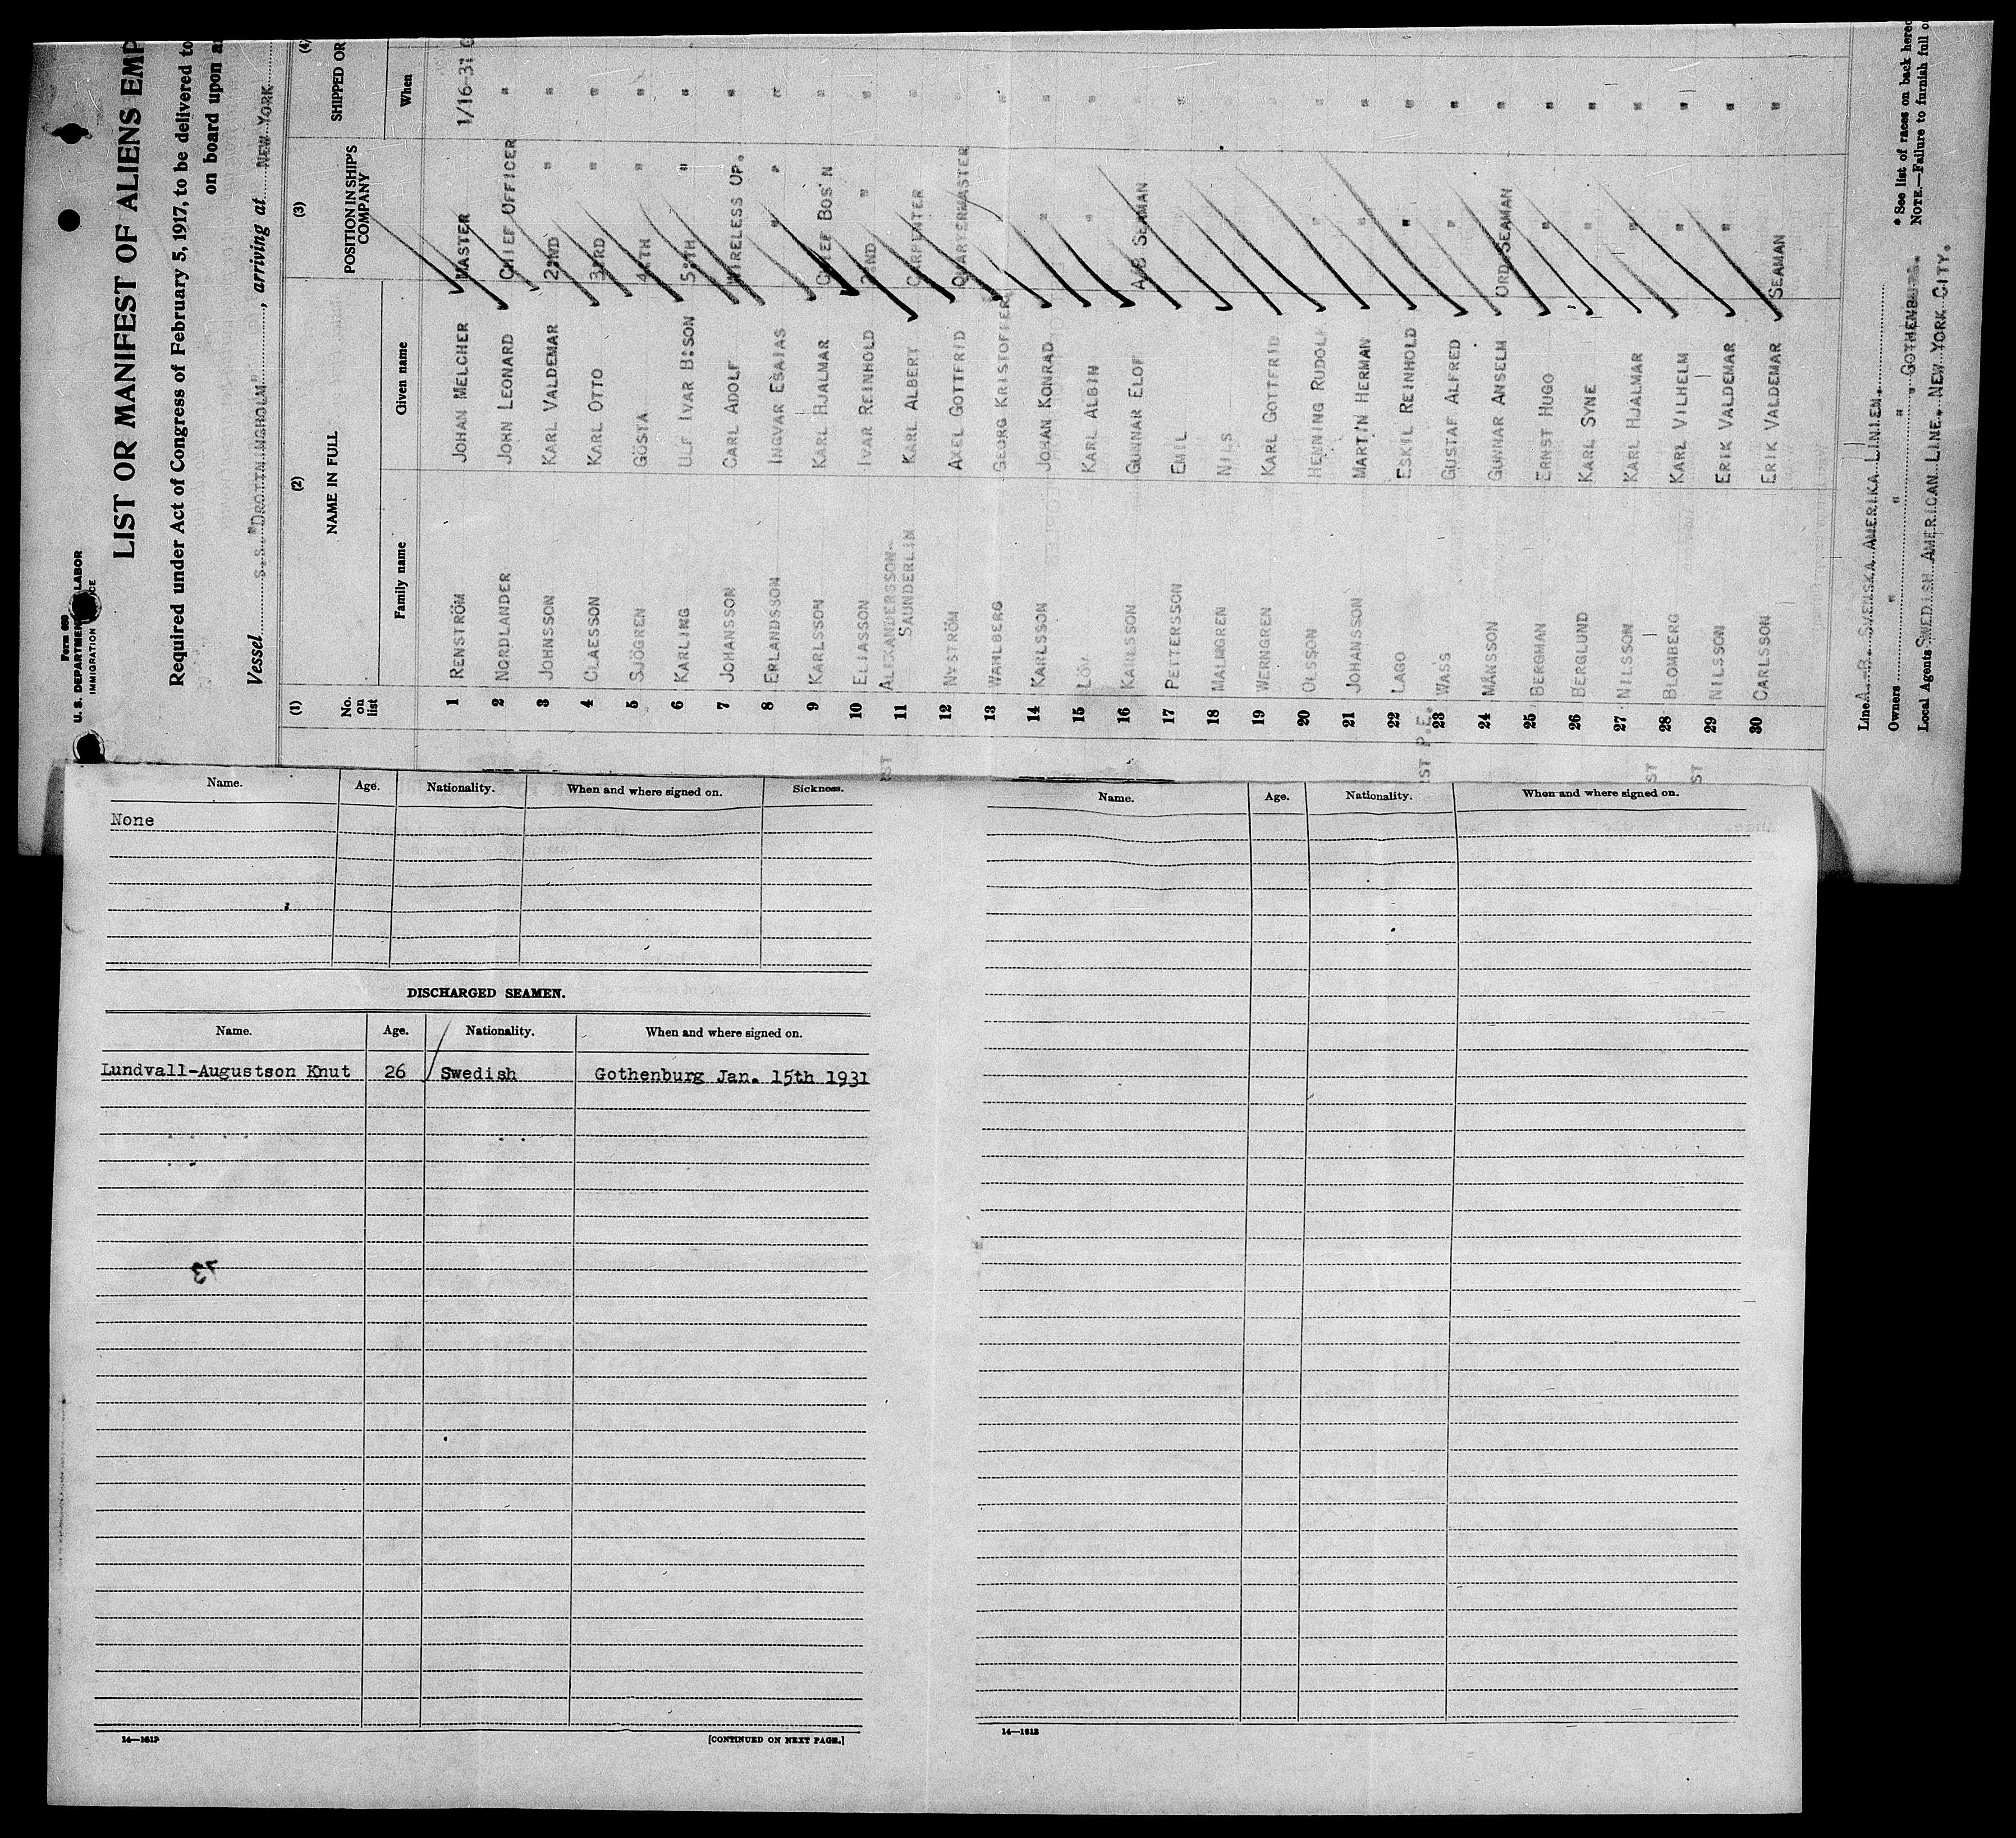 Form 689
U. S. DEPARTMENT LABOR
IMMIGRATION
LIST OR MANIFEST OF ALIENS EMP
Required under Act of Congress of February 5, 1917, to be delivered to
on board upon a
Vessel S.S. "DROTTNINGHOLM", arriving at NEW YORK
(1) (2) (3) (4)
No. on list NAME IN FULL POSITION IN SHIP'S COMPANY SHIPPED OR
Family name Given name When
1 RENSTRÖM JOHAN MELCHER MASTER 1/16-31 G
2 NORDLANDER JOHN LEONARD CHIEF OFFICER "
3 JOHNSSON KARL VALDEMAR 2:ND " "
4 CLAESSON KARL OTTO 3:RD " "
5 SJÖGREN GÖSTA 4:TH " "
6 KARLING ULF IVAR B:SON 5:TH " "
7 JOHANSSON CARL ADOLF WIRELESS OP. "
8 ERLANDSSON INGVAR ESAIAS " " "
9 KARLSSON KARL HJALMAR CHIEF BOS'N "
10 ELIASSON IVAR REINHOLD 2:ND " "
11 ALEXANDERSSON-SAUNDERLIN KARL ALBERT CARPENTER "
12 NYSTRÖM AXEL GOTTFRID QUARTERMASTER "
13 WAHLBERG GEORG KRISTOFFER "
14 KARLSSON JOHAN KONRAD " "
15 LÖV KARL ALBIN " "
16 KARLSSON GUNNAR ELOF A/B SEAMAN "
17 PETTERSSON EMIL "
18 MALMGREN NILS
19 WERNGREN KARL GOTTFRID "
20 OLSSON HENNING RUDOLF " "
21 JOHANSSON MARTIN HERMAN " "
22 LAGO ESKIL REINHOLD " "
23 WASS GUSTAF ALFRED " "
24 MÅNSSON GUNNAR ANSELM ORD. SEAMAN "
25 BERGMAN ERNST HUGO " "
26 BERGLUND KARL SYNE " "
27 NILSSON KARL HJALMAR " "
28 BLOMBERG KARL VILHELM " "
29 NILSSON ERIK VALDEMAR " "
30 CARLSSON ERIK VALDEMAR SEAMAN "
ST
ST P.E.
ST
ST
Line A.-B. SVENSKA AMERIKA LINIEN.
Owners " " " , GOTHENBURG.
Local Agents SWEDISH AMERICAN LINE. NEW YORK CITY.
* See list of races on back here
NOTE.—Failure to furnish full o
Name. Age. Nationality. When and where signed on. Sickness.
None
DISCHARGED SEAMEN.
Name. Age. Nationality. When and where signed on.
Lundvall-Augustson Knut 26 Swedish Gothenburg Jan. 15th 1931
73
14—1613
[CONTINUED ON NEXT PAGE.]
Name. Age. Nationality. When and where signed on.
14—1613